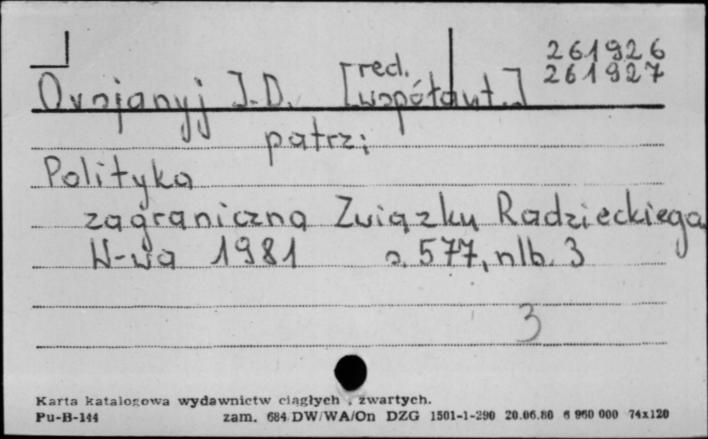 261926
Ovsjanyj I.D. [red. 261927
współaut.]
patrz:
Polityka
zagraniczna Związku Radzieckiego
W-wa 1981 s. 577, nlb. 3
3
Karta katalogowa wydawnictw ciągłych i zwartych.
Pu-B-144 zam. 684/DW/WA/On DZG 1501-1-290 20.06.80 6 960 000 74x120